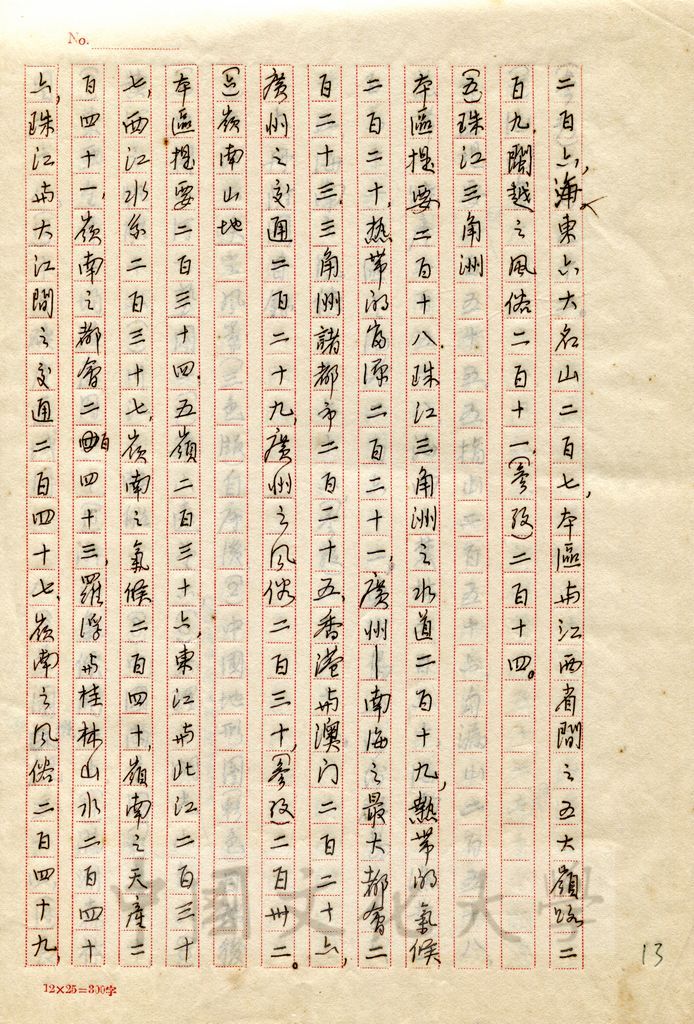 No.
二百六,海東六大名山二百七,本區与江西省間之五大嶺路二
百九,閩越之風俗二百十一,(參攷)二百十四。
(五)珠江三角洲
本區提要二百十八,珠江三角洲之水道二百十九,熱帶的氣候
二百二十,熱帶的富源二百二十一,廣州—南海之最大都會二
百二十三,三角洲諸都市二百二十五,香港与澳门二百二十六,
廣州之交通二百二十九,廣州之風俗二百三十,(參攷)二百卅二。
(六)嶺南山地
本區提要二百三十四,五嶺二百三十六,東江与北江二百三十
七,西江水系二百三十七,嶺南之氣候二百四十,嶺南之天產二
百四十一,嶺南之都會二百四十三,羅浮与桂林山水二百四十
六,珠江与大江間之交通二百四十七,嶺南之風俗二百四十九,
13
12×25=300字
中國文化大學